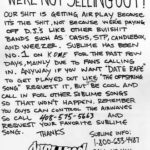 WE'RE NOT SELLING OUT!
OUR SHIT IS GETTING AIR PLAY BECAUSE
IT'S THE SHIT, NOT BECAUSE WE'RE PAYING
OFF D.J.'S LIKE OTHER BULLSHIT
BANDS SUCH AS OASIS, STP, CANDLEBOX,
AND WEEZER. SUBLIME HAS BEEN
NO. 1 ON FOR THE PAST FEW
DAYS, MAINLY DUE TO FANS CALLING
IN. ANYWAY IF YOU WANT "DATE RAPE"
TO GET PLAYED OUT LIKE "THE OFFSPRING
SONG" REQUEST IT, BUT BE COOL AND
CALL IN FOR OTHER SUBLIME SONGS
SO THAT WON'T HAPPEN. REMEMBER
YOU GUYS CAN CONTROL THE AIRWAVES
SO CALL 408-575-5663 AND
REQUEST YOUR FAVORITE SUBLIME
SONG.
THANKS
SUBLIME INFO:
1-800-633-9187